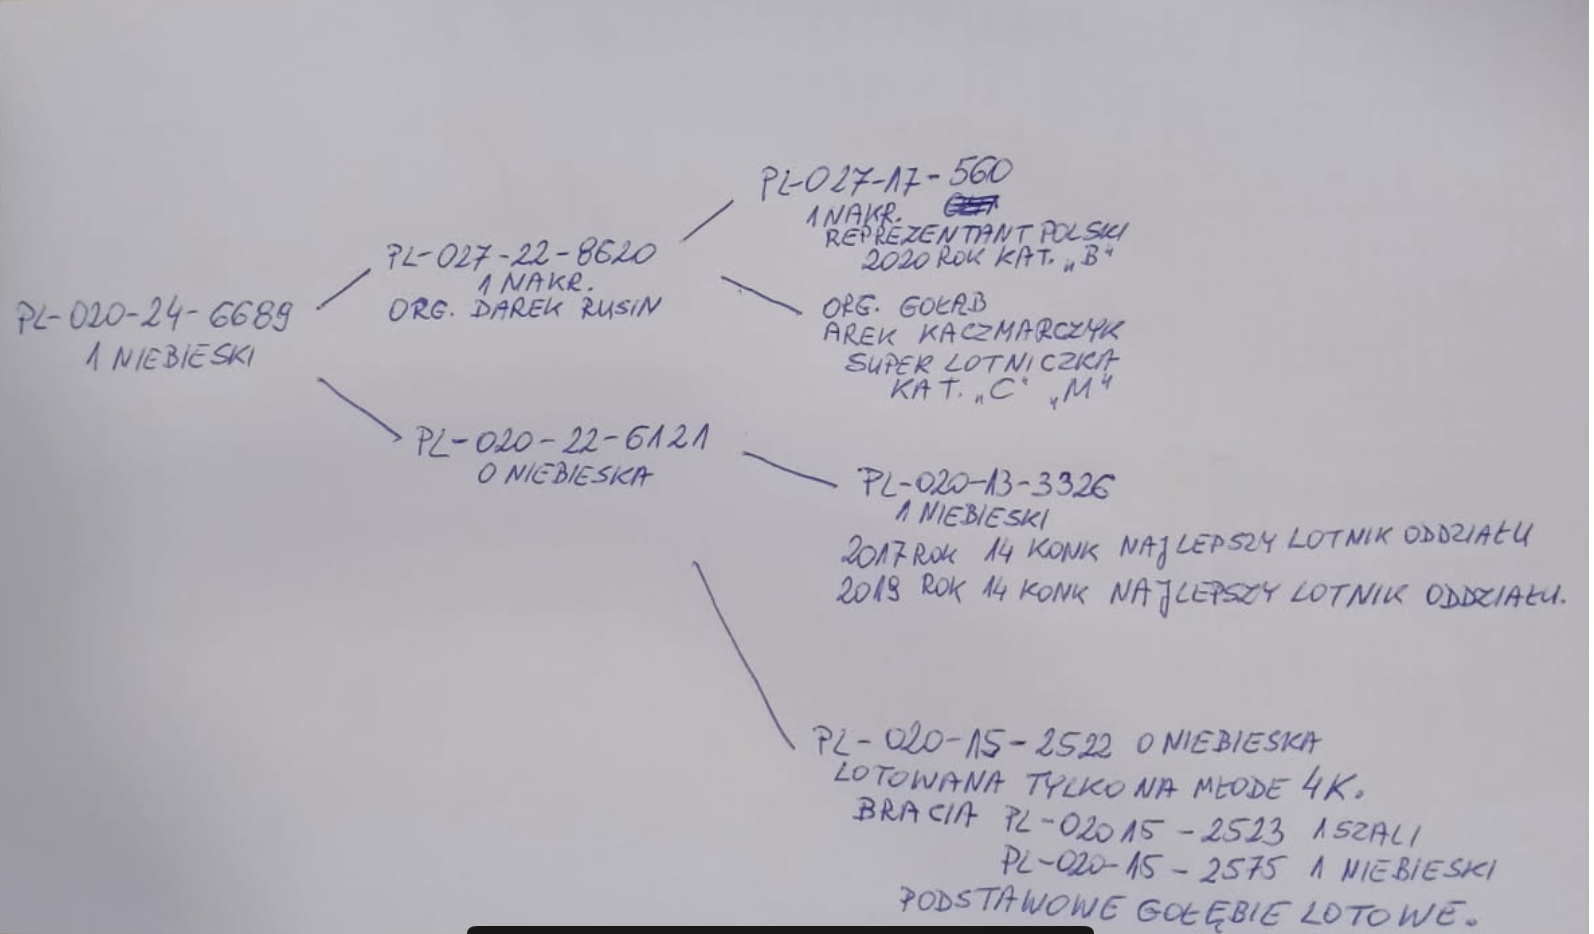 PL-020-24-6689
1 NIEBIESKI
PL-027-22-8620
1 NAKR.
ORG. DAREK RUSIN
PL-027-17-560
1 NAKR.
REPREZENTANT POLSKI
2020 ROK KAT. „B"
ORG. GOŁĄB
AREK KACZMARCZYK
SUPER LOTNICZKA
KAT. „C" „M"
PL-020-22-6121
0 NIEBIESKA
PL-020-13-3326
1 NIEBIESKI
2017 ROK 14 KONK NAJLEPSZY LOTNIK ODDZIAŁU
2019 ROK 14 KONK NAJLEPSZY LOTNIK ODDZIAŁU.
PL-020-15-2522 0 NIEBIESKA
LOTOWANA TYLKO NA MŁODE 4K.
BRACIA PL-02015-2523 1 SZALI
PL-020-15-2575 1 NIEBIESKI
PODSTAWOWE GOŁĘBIE LOTOWE.